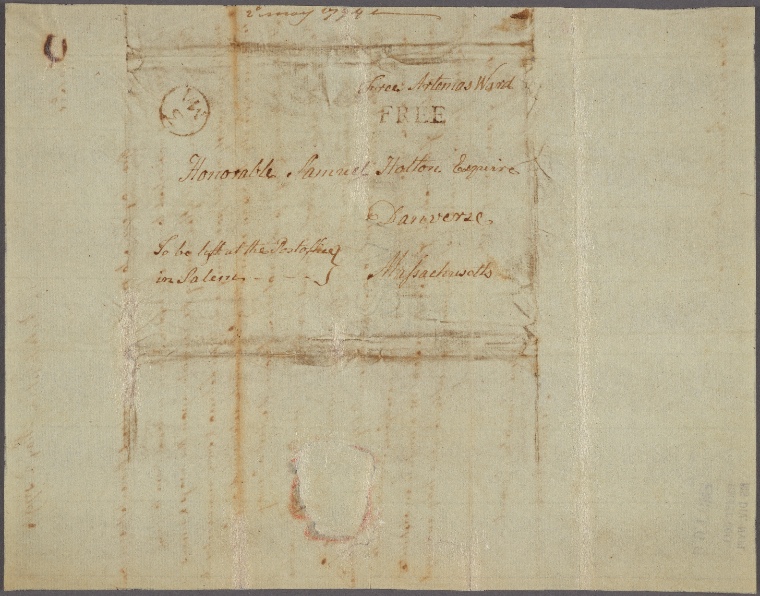 2 may 1794
free Artemas Ward
FREE
Honorable Samuel Holton Esquire
Danverse
To be left at the Postoffice }
in Salem - - - - }
Massachusetts